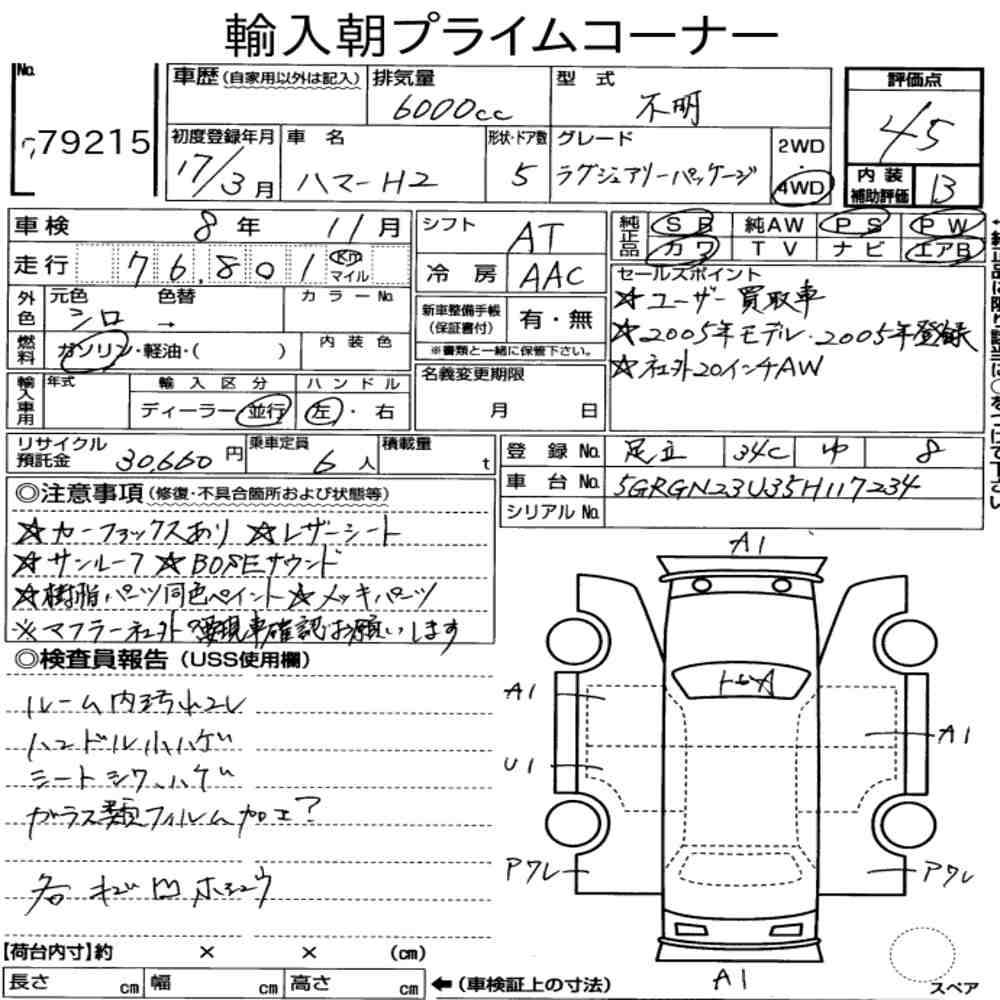 輸入朝プライムコーナー
No. 79215
車歴(自家用以外は記入) 排気量 6000cc 型式 不明 評価点 4/5
初度登録年月 17/3月 車名 ハマーH2 形状・ドア数 5 グレード ラグジュアリーパッケージ 2WD・4WD
内装補助評価 B
車検 8年 11月 シフト AT 純正品 SR 純AW PS PW
走行 76,801 Km マイル 冷房 AAC カワ TV ナビ エアB
外色 元色 シロ 色替 → カラーNo. 新車整備手帳(保証書付) 有・無
セールスポイント
☆ユーザー買取車
☆2005年モデル・2005年登録
☆社外20インチAW
燃料 ガソリン・軽油・( ) 内装色 ※書類と一緒に保管下さい。
輸入車用 年式 輸入区分 ディーラー 並行 ハンドル 左・右 名義変更期限 月 日
リサイクル預託金 30,660円 乗車定員 6人 積載量 t
登録No. 足立 34C ゆ 8
車台No. 5GRGN23U35H117234
シリアルNo.
◎注意事項(修復・不具合箇所および状態等)
☆カーファックスあり ☆レザーシート
☆サンルーフ ☆BOSEサウンド
☆樹脂パーツ同色ペイント ☆メッキパーツ
※マフラー社外 要現車確認お願いします
◎検査員報告(USS使用欄)
ルーム内汚れコレ
ハンドル小ハゲ
シートシワ、ハゲ
ガラス類フィルム加工?
【荷台内寸】約 × × (cm)
長さ cm 幅 cm 高さ cm ←(車検証上の寸法)
A1
A1
A1
U1
Pワレ
Pワレ
A1
スペア